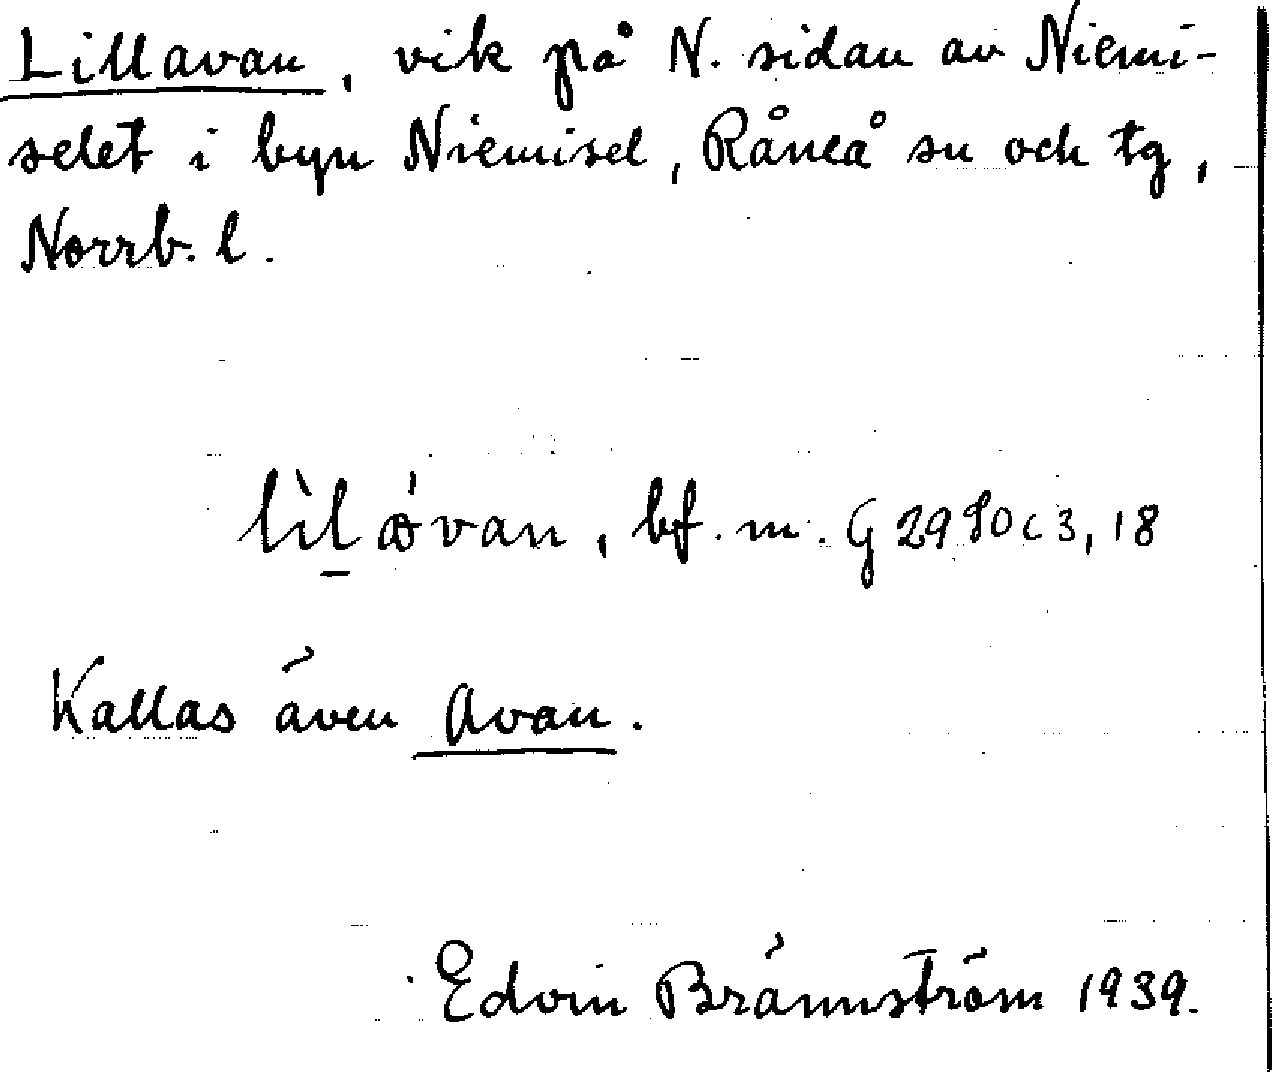 Lillavan, vik på N. sidan av Niemi-
selet i byn Niemisel, Råneå sn och tg,
Norrb. l.
bf. m. G 29
Kallas även Avan.
Edvin Brännström 1939.